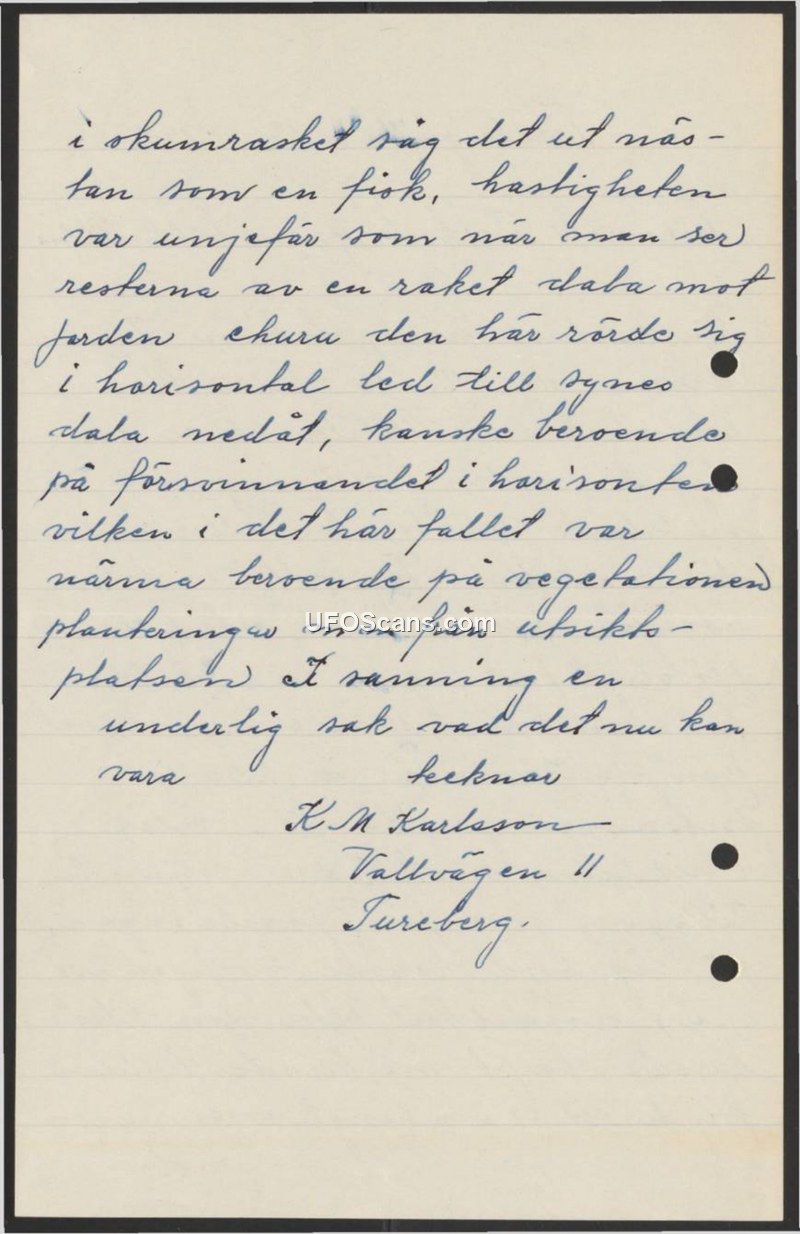 i skumrasket såg det ut näs-
tan som en fisk, hastigheten
var unjefär som när man ser
resterna av en raket dala mot
jorden ehuru den här rörde sig
i horisontal led till synes
dala nedåt, kanske beroende
på försvinnandet i horisonten
vilken i det här fallet var
närma beroende på vegetationen
planteringar från utsikts-
platsen I sanning en
underlig sak vad det nu kan
vara tecknar
K M Karlsson
Vallvägen 11
Tureberg.
UFOScans.com